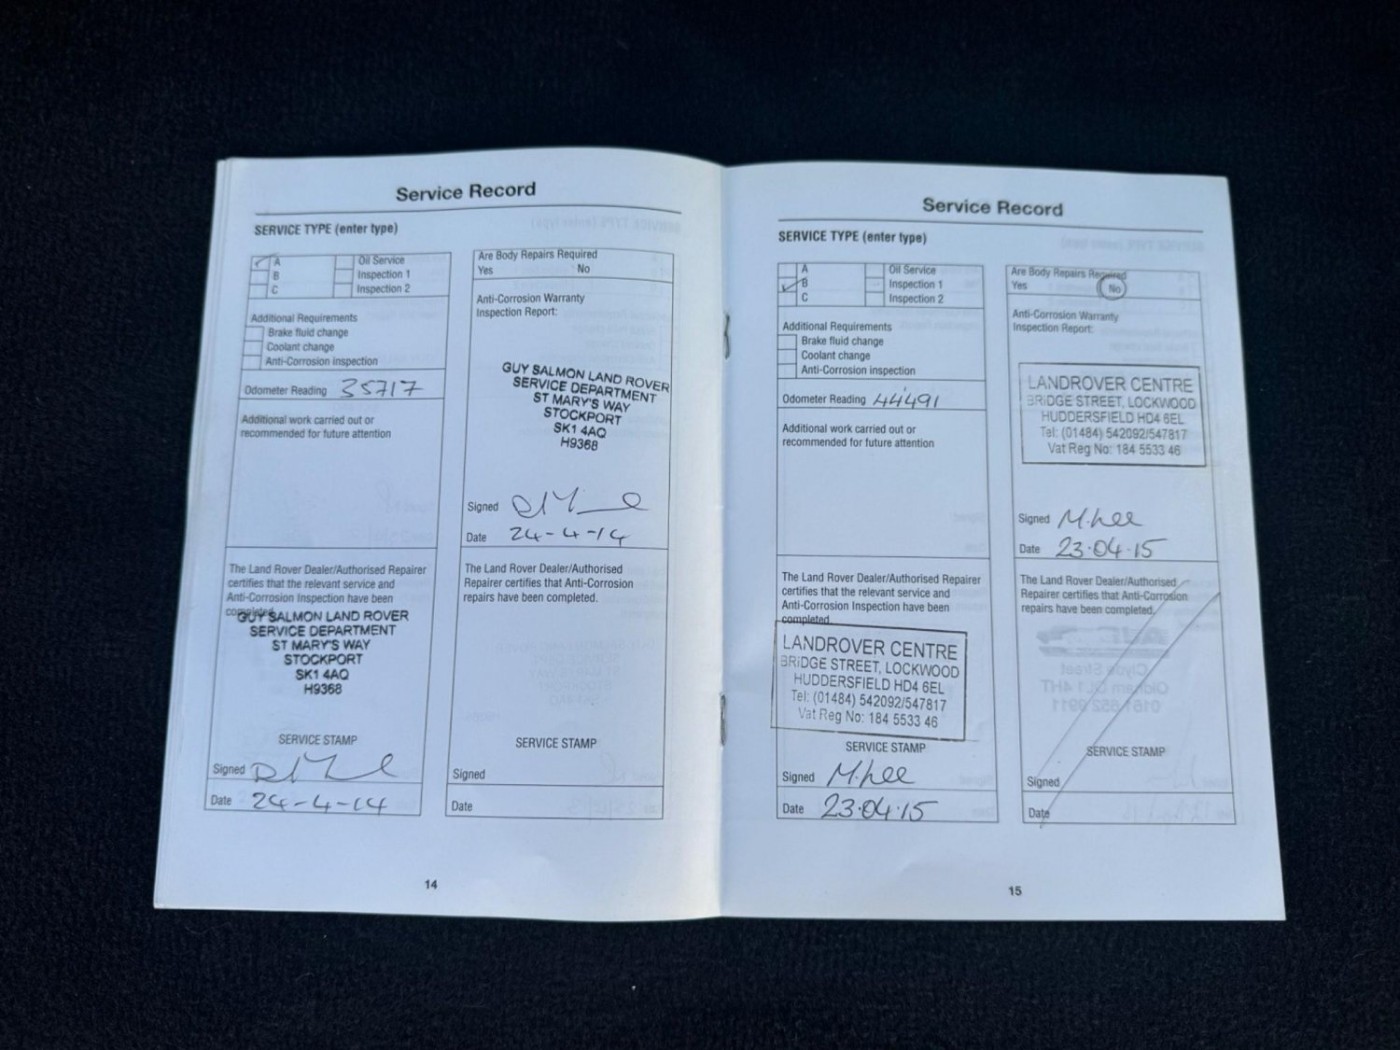 Service Record
SERVICE TYPE (enter type)
A
B
C
Oil Service
Inspection 1
Inspection 2
Additional Requirements
Brake fluid change
Coolant change
Anti-Corrosion inspection
Odometer Reading 35717
Additional work carried out or
recommended for future attention
The Land Rover Dealer/Authorised Repairer
certifies that the relevant service and
Anti-Corrosion Inspection have been
completed.
GUY SALMON LAND ROVER
SERVICE DEPARTMENT
ST MARY'S WAY
STOCKPORT
SK1 4AQ
H9368
SERVICE STAMP
Signed
Date 24-4-14
Are Body Repairs Required
Yes No
Anti-Corrosion Warranty
Inspection Report:
GUY SALMON LAND ROVER
SERVICE DEPARTMENT
ST MARY'S WAY
STOCKPORT
SK1 4AQ
H9368
Signed
Date 24-4-14
The Land Rover Dealer/Authorised
Repairer certifies that Anti-Corrosion
repairs have been completed.
SERVICE STAMP
Signed
Date
14
Service Record
SERVICE TYPE (enter type)
A
B
C
Oil Service
Inspection 1
Inspection 2
Additional Requirements
Brake fluid change
Coolant change
Anti-Corrosion inspection
Odometer Reading 44491
Additional work carried out or
recommended for future attention
The Land Rover Dealer/Authorised Repairer
certifies that the relevant service and
Anti-Corrosion Inspection have been
completed.
LANDROVER CENTRE
BRIDGE STREET, LOCKWOOD
HUDDERSFIELD HD4 6EL
Tel: (01484) 542092/547817
Vat Reg No: 184 5533 46
SERVICE STAMP
Signed M. Lee
Date 23.04.15
Are Body Repairs Required
Yes No
Anti-Corrosion Warranty
Inspection Report:
LANDROVER CENTRE
BRIDGE STREET, LOCKWOOD
HUDDERSFIELD HD4 6EL
Tel: (01484) 542092/547817
Vat Reg No: 184 5533 46
Signed M. Lee
Date 23.04.15
The Land Rover Dealer/Authorised
Repairer certifies that Anti-Corrosion
repairs have been completed.
SERVICE STAMP
Signed
Date
15